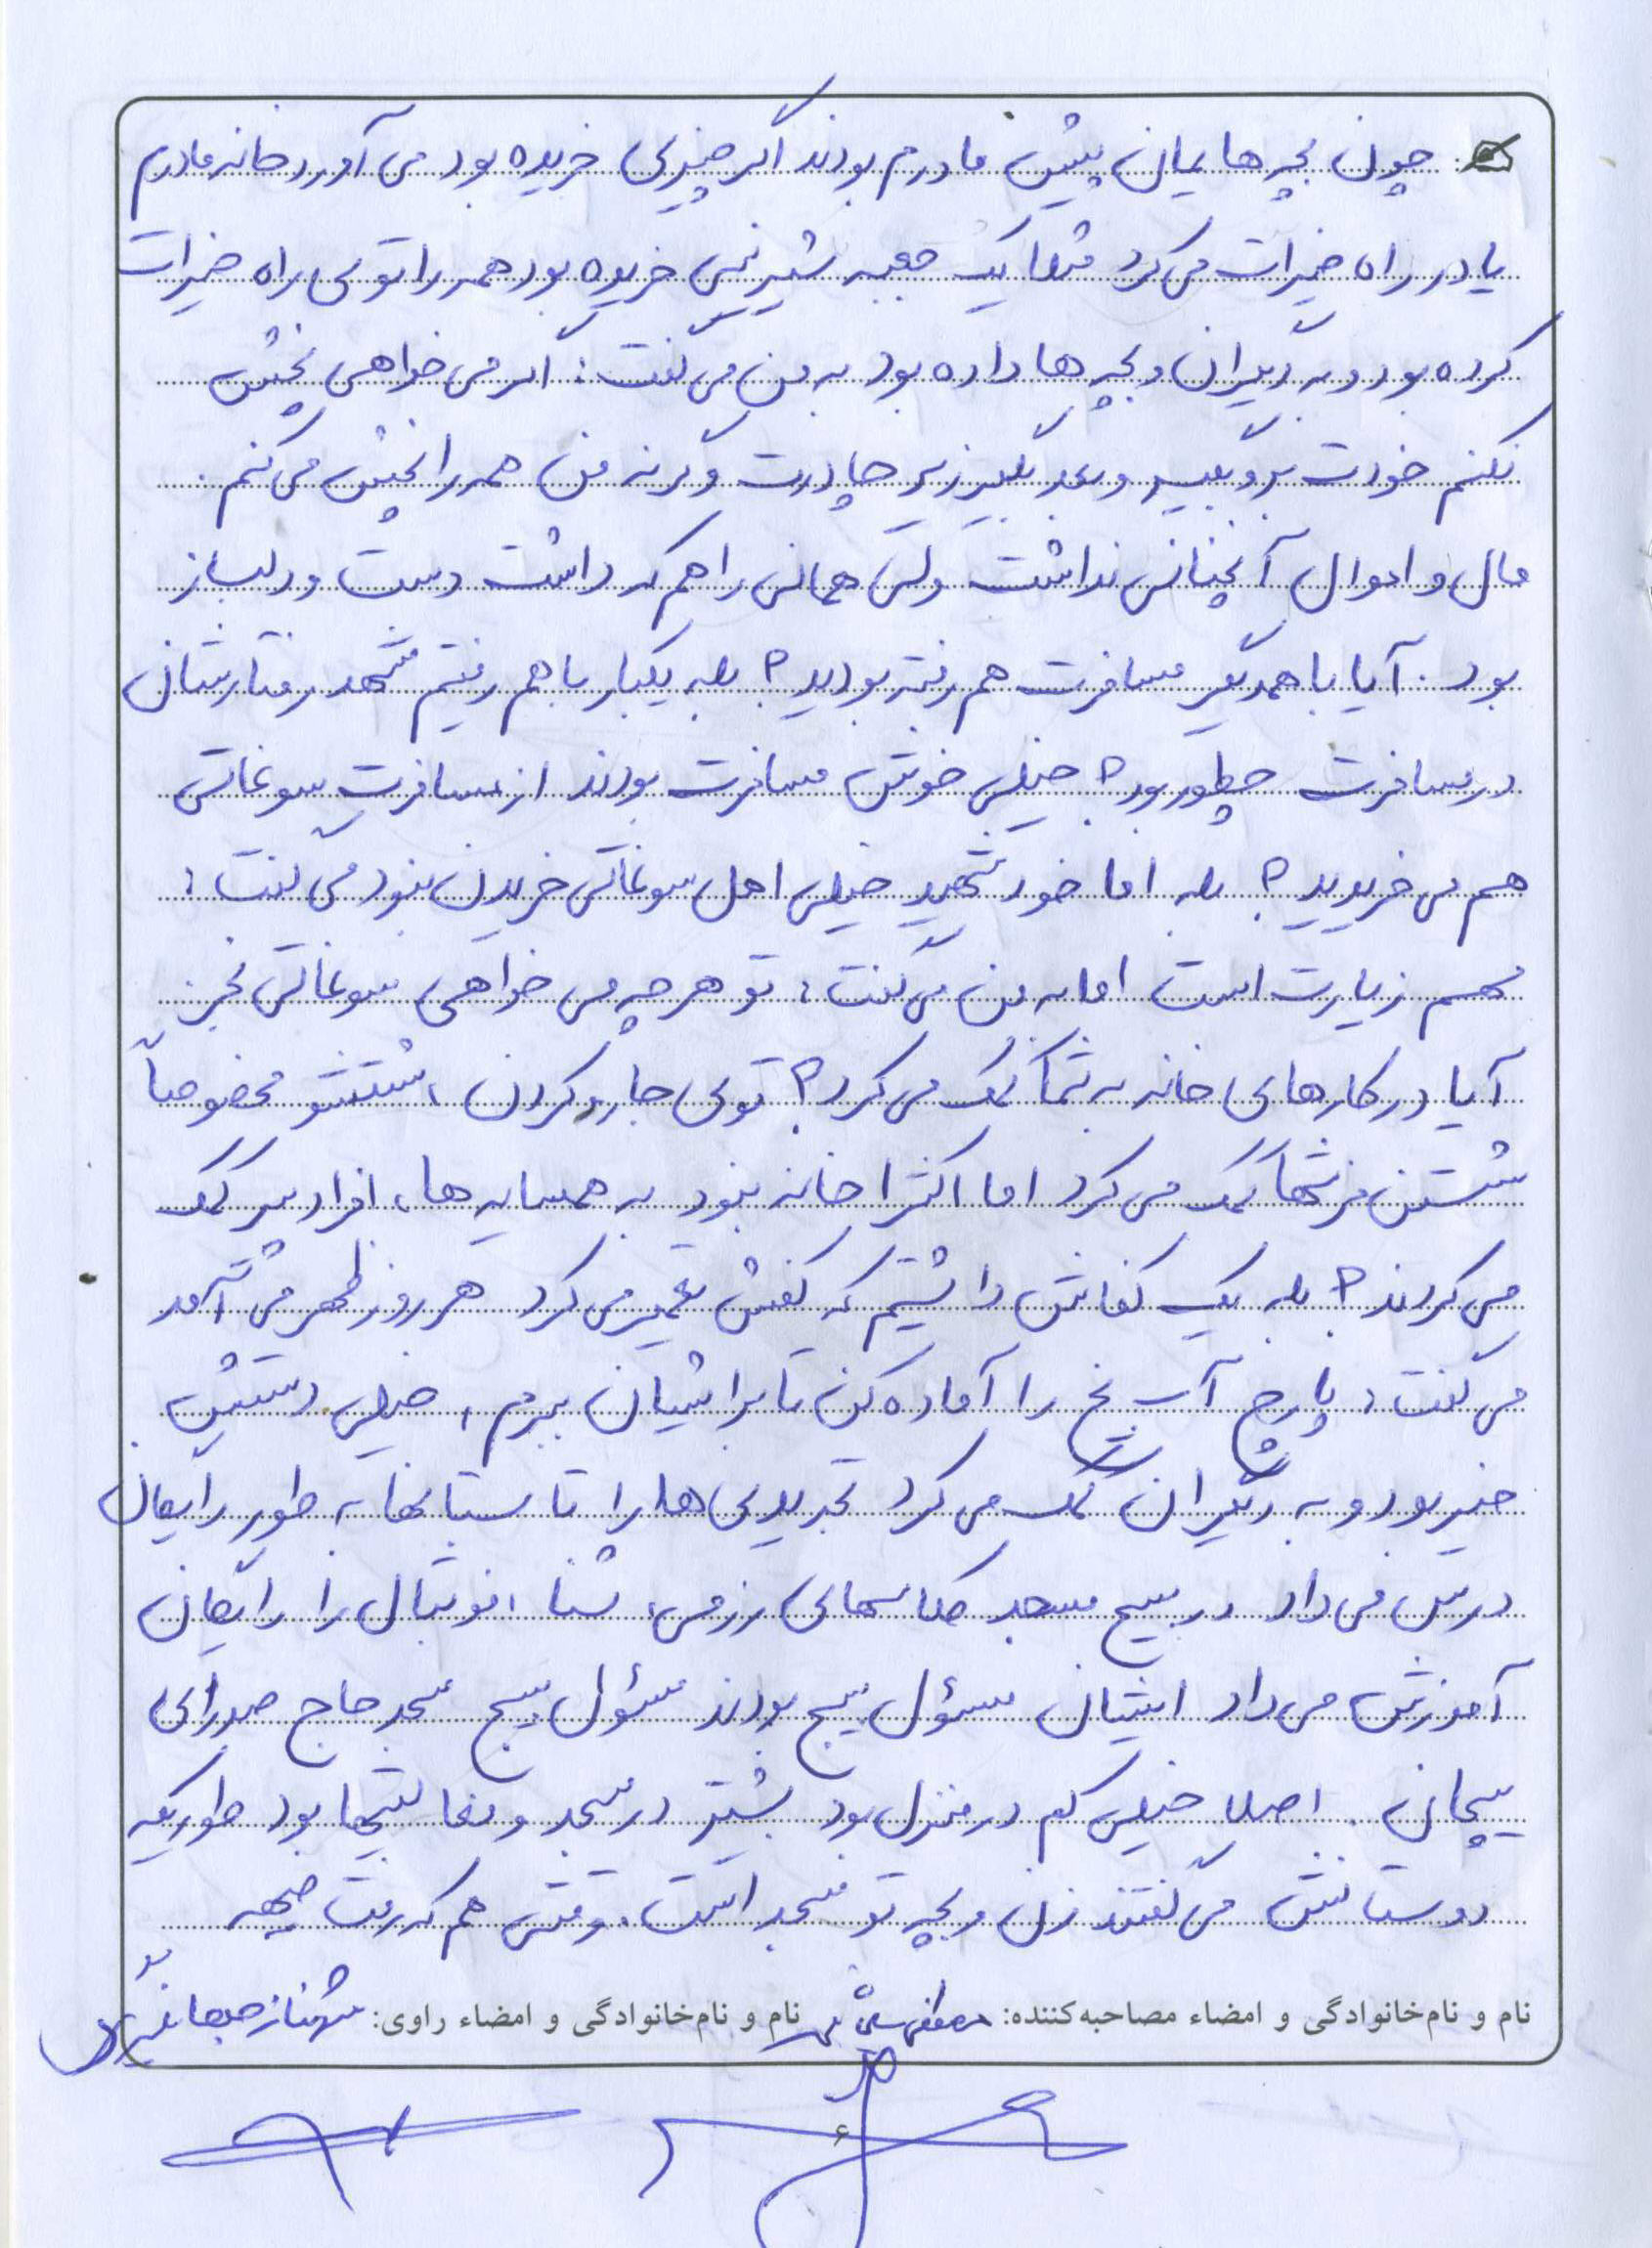 چون بچه هایمان پیش مادرم بودند اگر چیزی خریده بود می آورد خانه مادرم
یا در راه خیرات می کرد مثلا یک جعبه شیرینی خریده بود همه را توی راه خیرات
کرده بود و به دیگران و بچه ها داده بود به من می گفت: اگر می خواهی پخش
نکنم خودت برو بگیر و بعد بگیر زیر چادرت وگرنه من همه را پخش می کنم.
مال و اموال آنچنانی نداشت ولی همانی را هم که داشت دست و دلباز
بود. آیا با همدیگر مسافرت هم رفته بودید؟ بله یکبار با هم رفتیم مشهد رفتارشان
در مسافرت چطور بود؟ خیلی خوش مسافرت بودند از مسافرت سوغاتی
هم می خریدید؟ بله اما خود شهید خیلی اهل سوغاتی خریدن نبود می گفت:
مهم زیارت است اما به من می گفت: تو هر چه می خواهی سوغاتی بخر.
آیا در کارهای خانه به شما کمک می کرد؟ توی جارو کردن، شستشو مخصوصاً
شستن فرشها کمک می کرد اما اکثرا خانه نبود به همسایه ها، افراد پیر کمک
می کردند؟ بله یک کفاش داشتیم که کفش تعمیر می کرد هر روز ظهر می آمد
می گفت: پارچ آب یخ را آماده کن تا برایشان ببرم، خیلی دستش
خیر بود و به دیگران کمک می کرد تجدیدی ها را تابستانها به طور رایگان
درس می داد در بسیج مسجد کلاسهای رزمی، شنا، فوتبال را رایگان
آموزش می داد ایشان مسؤل بسیج بودند مسؤل بسیج مسجد حاج صدرالی
پیچان. اصلا خیلی کم در منزل بود بیشتر در مسجد و فعالیتها بود طوریکه
دوستانش می گفتند زن و بچه تو مسجد است. وقتی هم که رفت جبهه
نام و نام‌خانوادگی و امضاء مصاحبه‌کننده: مصطفی
نام و نام‌خانوادگی و امضاء راوی: شهناز
۶